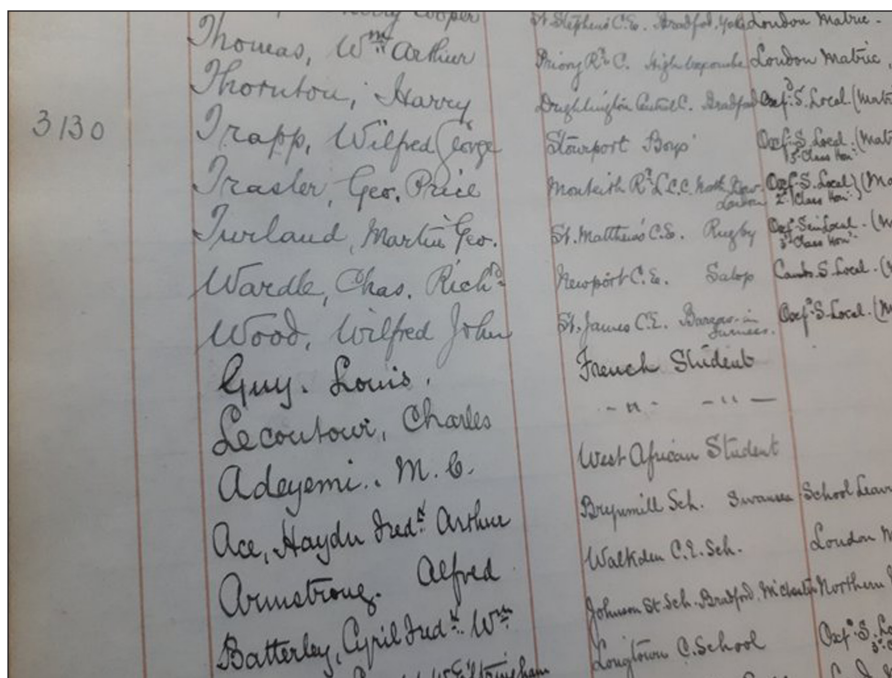 Cooper St. Stephens C.E. Bradford, Yorks London Matric.
Thomas, Wm Arthur Priory Rd C. High Wycombe London Matric.
Thornton, Harry Drighlington Central C. Bradford Oxfd. S. Local. (Matric
3130 Trapp, Wilfred George Stourport Boys' Oxf. S. Local. (Matric
3rd Class Hon.
Trasler, Geo. Price Monteith Rd L.C.C. North Bow London Oxfd. S. Local} (Ma
2nd Class Hon.
Turland, Martin Geo. St. Matthew's C.E. Rugby Oxfd. Sen. Local. (M
3rd Class Hon.
Wardle, Chas. Richd. Newport C.E. Salop Camb. S. Local. (M
Wood, Wilfred John St. James C.E. Barrow-in-Furness. Oxfd. S. Local. (M
Guy. Louis. French Student
Lecoutour, Charles - " - - " -
Adeyemi. M. C. West African Student
Ace, Haydn Fredk. Arthur Brynmill Sch. Swansea School Leav
Armstrong. Alfred Walkden C.E. Sch. London M
Batterley, Cyril Fredk. Wm Johnson St. Sch. Bradford, Manchester Northern
Longtown C. School Oxfd. S. Lo